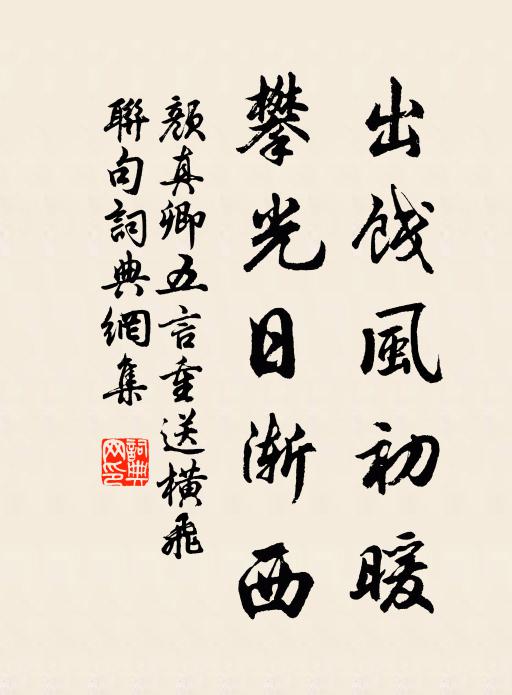 出餞風初暖
攀光日漸西
顏真卿五言重送橫飛
聯句詞典網集
詞典
网印